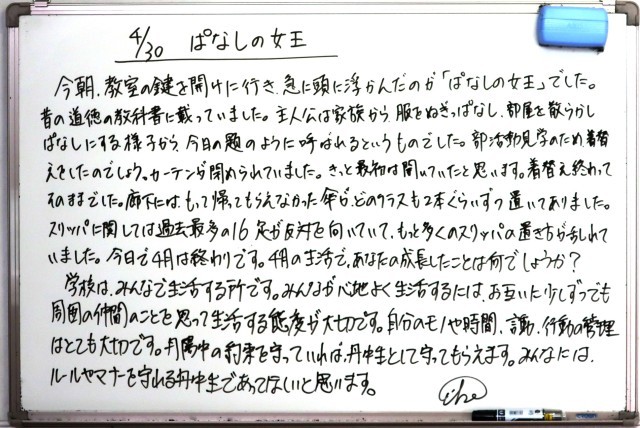 4/30 ぱなしの女王
今朝、教室の鍵を開けに行き、急に頭に浮かんだのが「ぱなしの女王」でした。
昔の道徳の教科書に載っていました。主人公は家族から、服をぬぎっぱなし、部屋を散らかし
ぱなしにする様子から、今日の題のように呼ばれるというものでした。部活動見学のため、着替
えをしたのでしょう。カーテンが閉められていました。きっと最初は開いていたと思います。着替え終わって
そのままでした。廊下には、もって帰ってもらえなかった傘が、どのクラスも2本ぐらいずつ置いてありました。
スリッパに関しては過去最多の16足が反対を向いていて、もっと多くのスリッパの置き方が乱れて
いました。今日で4月は終わりです。4月の生活で、あなたの成長したことは何でしょうか?
学校は、みんなで生活する所です。みんなが心地よく生活するには、お互いに少しずつでも
周囲の仲間のことを思って生活する態度が大切です。自分のモノや時間、言動、行動の管理
はとても大切です。丹陽中の約束を守っていれば、丹中生として守ってもらえます。みんなには、
ルールやマナーを守れる丹中生であってほしいと思います。